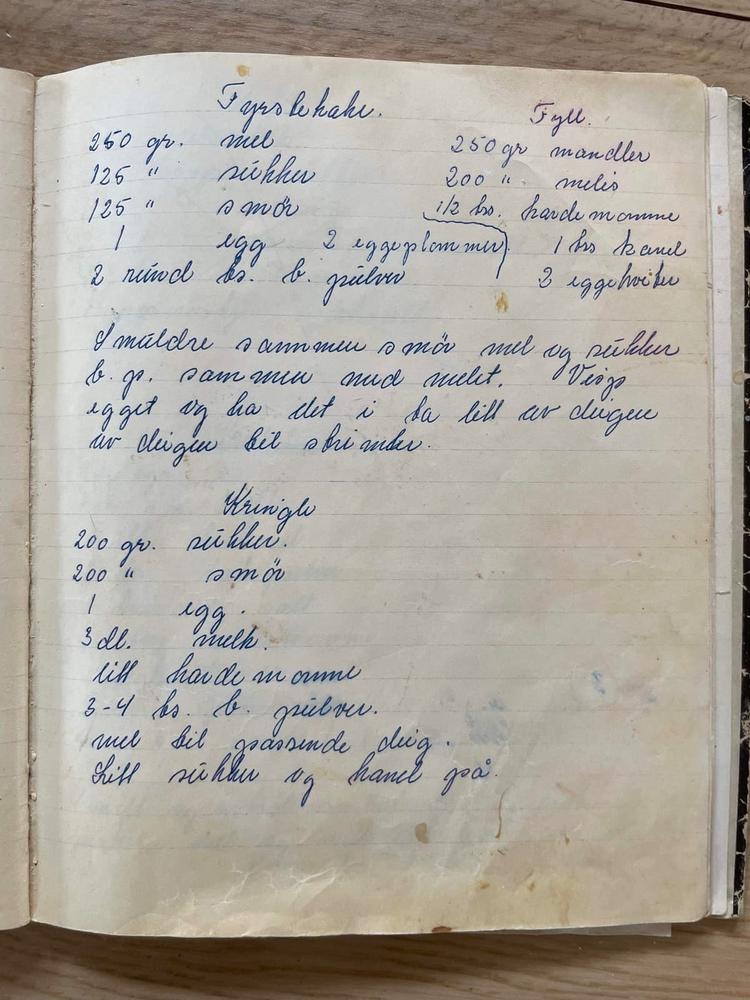 Fyrstekake.
250 gr. mel
125 " sukker
125 " smör
1 egg 2 eggeplommer
2 rund ts. b. pulver
Fyll.
250 gr mandler
200 " melis
1/2 ts. kardemomme
1 ts kanel
2 eggehviter
Smuldre sammen smör mel og sukker
b. p. sammen med melet. Visp
egget og ha det i ta litt av deigen
av deigen til strimler.
Kringle
200 gr. sukker.
200 " smör
1 egg.
3 dl. melk.
litt kardemomme
3-4 ts. b. pulver.
mel til passende deig.
Litt sukker og kanel på.